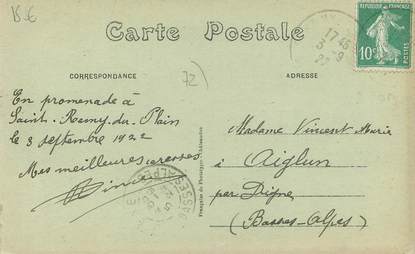 15€
Carte Postale
17 45
3 -9
22
10c
POSTES
CORRESPONDANCE
72
ADRESSE
En promenade à
Saint-Remy-du-Plain
le 3 septembre 1922
Mes meilleures caresses
Madame Vincent Marie
à Aiglun
par Digne
(Basses-Alpes)
BASSES-ALPES